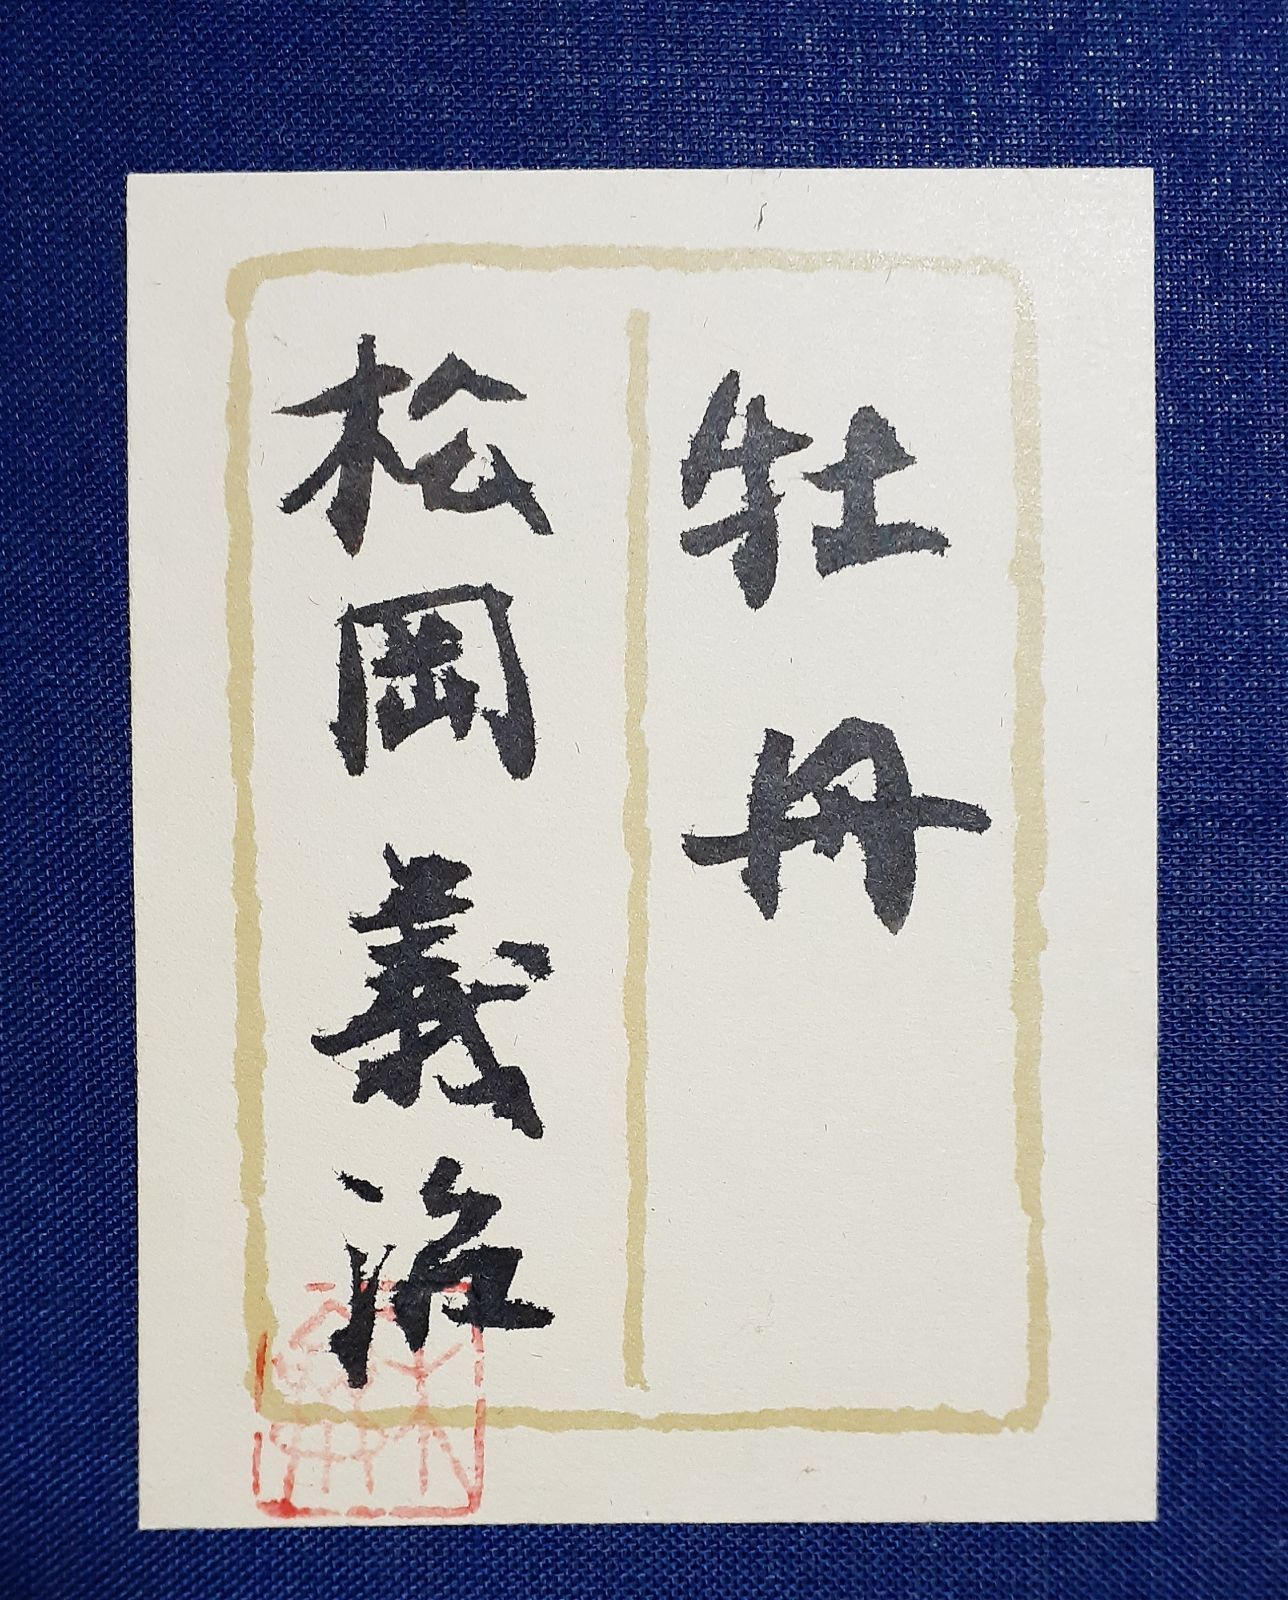 牡丹
松岡義治